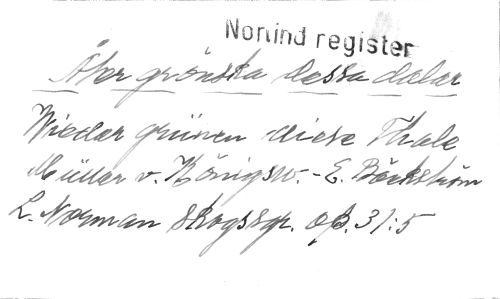 Norrind register
Åter grönska dessa dalar
Wieder grünen diese Thale
Müller v. Königsw. - E. Bäckström
L. Norman Skogssgr. op. 31:5